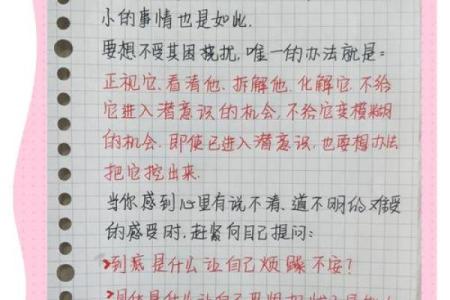 小的事情也是如此.
要想不受其困扰,唯一的办法就是:
正视它.看清他.拆解他.化解它.不给
它进入潜意识的机会,不给它变模糊
的机会.即使已进入潜意识,也要想办法
把它挖出来.
当你感到心里有说不清、道不明的难受
的感受时,赶紧向自己提问:
>到底是什么让自己烦躁不安?